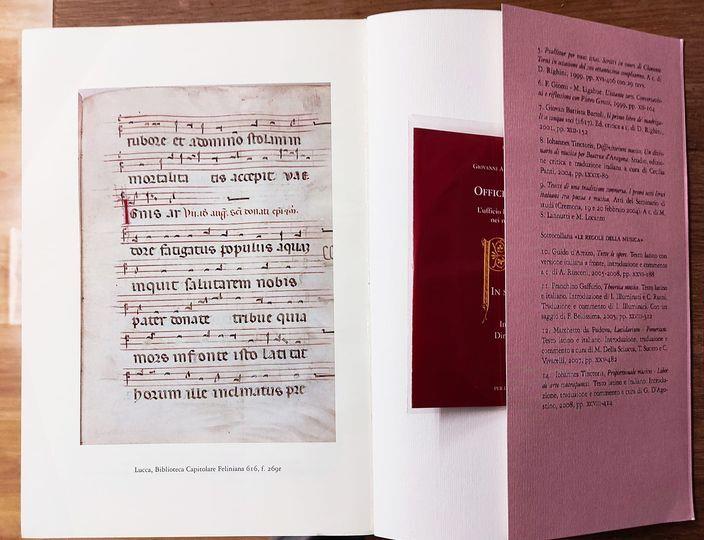 rubore et adomino stolinim
mortalita tis accepit vae
Ignis ar Vii. id aug. sci donati epi
dore fatigatus populus aquaz
inquit salutarem nobis
pater donate tribue quia
mors inf onte isto lati tat
horum ille inclinatus pre
Lucca, Biblioteca Capitolare Feliniana 616, f. 269r
GIOVANNI A
OFFIC
L'ufficio
nei r
IN S
In
Dir
PER I
5. Psallitur per voces istas. Scritti in onore di Clemente
Terni in occasione del suo ottantesimo compleanno. A c. di
D. Righini, 1999, pp. XVI-406 con 29 tavv.
6. F. Giomi - M. Ligabue. L'istante zero. Conversazio-
ni e riflessioni con Pietro Grossi, 1999, pp. XII-104
7. Giovan Battista Bartoli, Il primo libro de' madriga-
li a cinque voci (1617). Ed. critica a c. di D. Righini,
2001, pp. XLII-152
8. Iohannes Tinctoris, Diffinitorium musice. Un dizio-
nario di musica per Beatrice d'Aragona. Studio, edizio-
ne critica e traduzione italiana a cura di Cecilia
Panti, 2004, pp. LXXIX-80
9. Tracce di una tradizione sommersa. I primi testi lirici
italiani tra poesia e musica. Atti del Seminario di
studi (Cremona, 19 e 20 febbraio 2004). A c. di M.
S. Lannutti e M. Locanto
Sottocollana «LE REGOLE DELLA MUSICA»
10. Guido d'Arezzo, Tutte le opere. Testo latino con
versione italiana a fronte, introduzione e commento
a c. di A. Rusconi, 2005-2008, pp. XXVI-188
11. Franchino Gaffurio, Theorica musice. Testo latino
e italiano. Introduzione di I. Illuminati e C. Ruini.
Traduzione e commento di I. Illuminati. Con un
saggio di F. Bellissima, 2005, pp. XXVIII-312
12. Marchetto da Padova, Lucidarium - Pomerium.
Testo latino e italiano. Introduzione, traduzione e
commento a cura di M. Della Sciucca, T. Sucato e C.
Vivarelli, 2007, pp. XXV-482
14. Iohannes Tinctoris, Proportionale musices - Liber
de arte contrapuncti. Testo latino e italiano. Introdu-
zione, traduzione e commento a cura di G. D'Ago-
stino, 2008, pp. XCVIII-424